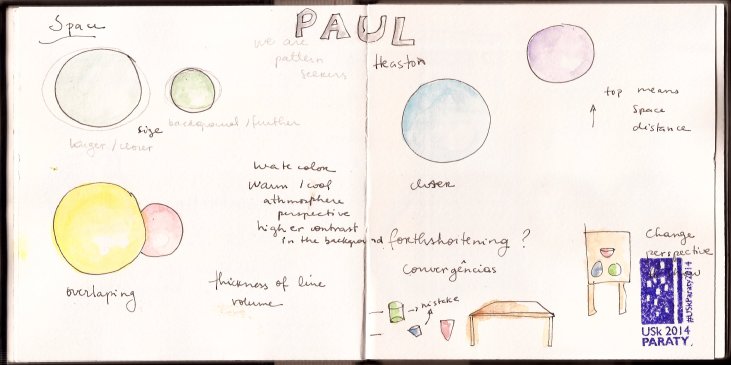 Space
PAUL
Heaston
we are
pattern
seekers
size
background/further
larger/closer
top means
space
distance
closer
watercolor
warm/cool
athmosphere
perspective
higher contrast
in the background
forthshortening?
Convergências
overlaping
thickness of line
volume
→ mistake
Change
perspective
USk 2014
PARATY.
#USkParaty2014